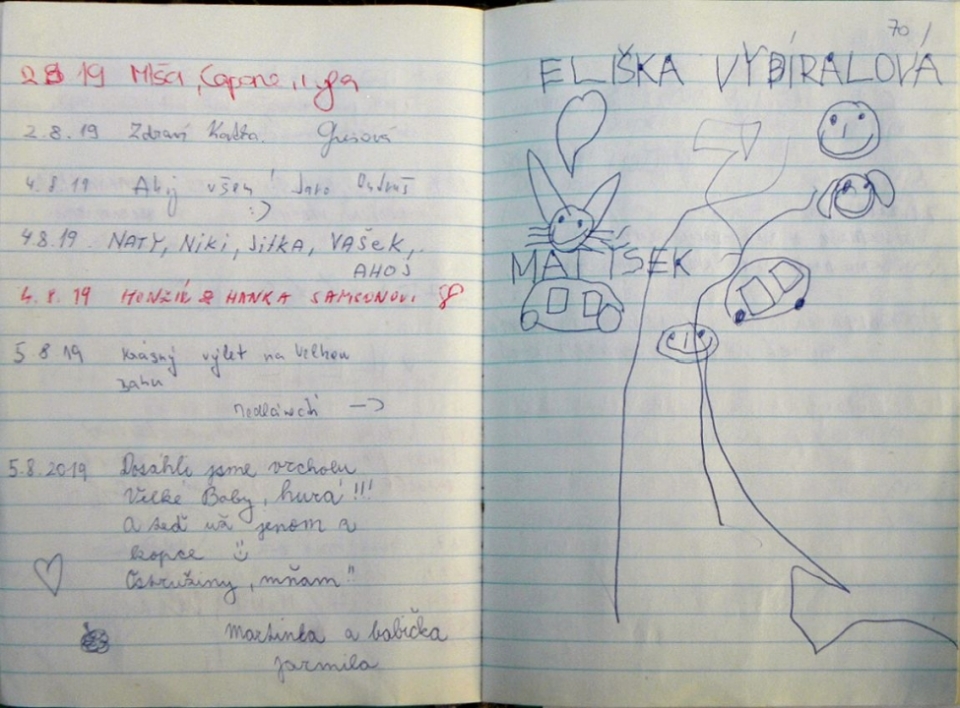 2.8 19 Míša, Capone, 
2.8.19 Zdraví Kačka. Gusová
4.8 19 Ahoj všem! Jaro Ondruš
:)
4.8.19. NATY, Niki, Jitka, VAŠEK,
AHOJ
4.8.19 HONZÍK & HANKA SAMSONOVI
5 8 19 krásný výlet na Velkou
babu
Medlánečtí →
5.8.2019 Dosáhli jsme vrcholu
Velké Baby, hurá!!!
A teď už jenom z
kopce
Ostružiny, mňam!!
Martinka a babička
Jarmila
70
ELIŠKA VYBÍRALOVÁ
MATÍSEK